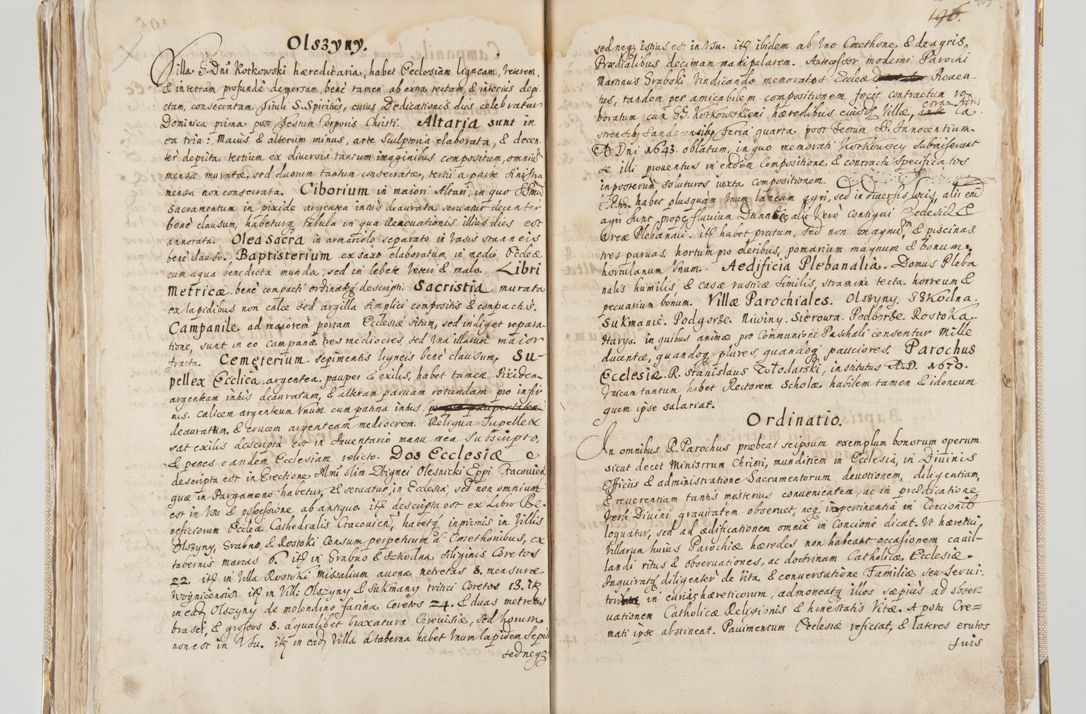 Olszyny.
Villa G. Dni Kotkowski hæreditaria, habet Ecclesiam ligneam, veterem,
& in terram profundè demersam, benè tamen ab extra tectam, & interius depi-
ctam, consecratam, tituli S. Spiritûs, cuius Dedicationis dies celebratur
Dominica prima post Festum Corporis Christi. Altaria sunt in
ea tria: Maius & alterum minus, arte Sculptoria elaborata, & decen-
ter depicta, tertium ex diversis tantum imaginibus compositum, omnia
mensæ muratæ, sed duorum tantum consecratæ, tertii a parte Sinistra
mensa non consecrata. Ciborium in maiori Altari, in quo SSmum
Sacramentum in pixide argentea intus deaurata servatur decenter
bene clausum, habetur tabula in qua Renovationis illius dies est
annotata. Olea Sacra in armariolo separato in vasis stanneis
bene clauso. Baptisterium ex saxo elaboratum, in medio Ecclæ
cum aqua benedicta munda, sed in lebete veteri & malo. Libri
Metricæ benè compacti ordinatè descripti. Sacristia murata
ex lapidibus non calce sed argilla simplici compositis & compactis.
Campanile ad majorem portam Ecclesiæ situm, sed indiget repara-
tione, sunt in eo campanæ tres mediocres, sed una illarum maior
fracta. Cemeterium sepimentis ligneis benè clausum. Su-
pellex Ecclica argentea, pauper & exilis, habet tamen Pixidem
argenteam intus deauratam, & alteram parvam rotundam pro infir
nis. Calicem argenteum unum cum patina intus
deauratum, & crucem argenteam mediocrem. Reliqua Supellex
sat exilis descripta est in Inventario manu mea subscripto,
& penes eandem Ecclesiam relicto. Dos Ecclesiæ
descripta est in Erectione Mni olim Zbignei Olesnicki Eppi Cracovien
quæ in Pargameno habetur, & servatur in Ecclesia, sed non omnium
est in usu & possessione ab antiquo. itē descripta est ex Libro Be-
neficiorum Ecclæ Cathedralis Cracovien, habetq inprimis in Villis
Olszyny, Grabno, & Rostoki Censum perpetuum & Cmethonibus, ex
tabernis marcas 6. itē in Grabno & Szkodna siliginis Coretos
22. itē in Villa Rostoki Missalium avenæ metretas 8. mensuræ
Woynicensis. itē in Villi Olszyny & Sukmany tritici Coretos 13. itē
in eadē Olszyny de molendino farina Coretos 24. & duas metretas
brasei, & grossos 8. a qualibet braxatura Cerevisiæ, sed horum
non est in usu. itē in eadē Villa à taberna habet unum lapidem sepi
sed neq
196.
sed neq istius est in usu. itē ibidem ab uno Cmethone, & de agris
Prædialibus decimam manipularem. Antecessor moderni Parochi
Martinus Grabski vindicando memoratos Ecclæ Proven-
tus, tandem per amicabilem compositionem fecit contractum ro-
boratum cum GG. Kotkowskiemi hæredibus eiusdē Villæ, coram Actis Ca
strensibq Sandecensibq feria quarta post Festum S. Innocentium
A Dni 1643. oblatum, in quo memorati Kotkowscy submiserunt
se illi proventus in eadem Compositione, & contractu specificatos
inposterum soluturos iuxta compositionem.
habet plusquam unum laneum agri, sed in diversis locis, alii enī
agri sunt propè fluvium Dunaiec alij vero contigui Ecclesiæ &
areæ Plebanali. itē habet pratum, sed non magnum, & piscinas
tres parvas, hortum pro oleribus, pomarium magnum & bonum,
hortulanum unum. Aedificia Plebanalia. Domus Pleba
nalis humilis, & casæ rusticæ similis, stramine tecta. horreum &
pecuarium bonum. Villæ Parochiales. Olszyny. Szkodna.
Sukmanie. Podgorze. Niwiny. Sierowa. Podborze. Rostoka.
Harys. in quibus animæ pro Communione Paschali censentur Mille
ducentæ, quandoq plures, quandoq pauciores. Parochus
Ecclesiæ. R. Stanislaus Wlodarski, institutus A.D. 1670.
Unicum tantum habet Rectorem Scholæ, habilem tamen & idoneum
quem ipse salariat.
Ordinatio.
In omnibus R. Parochus præbeat seipsum exemplum bonorum operum
sicut decet Ministrum Christi, munditiem in Ecclesia, in Divinis
Officiis & administratione Sacramentorum devotionem, diligentiam,
& reverentiam tantis mysterijs convenientem, ac in prædicatione
Verbi Divini gravitatem observet, neq impertinentia in Concione
loquatur, sed ad ædificationem omnia in Concione dicat. Ut hæretici,
Villarum huius Parochiæ hæredes non habeant occasionem cavil-
landi ritus & observationes, ac doctrinam Catholicæ Ecclesiæ.
Inquirat diligenter de vita & conversatione Familiæ seu servi-
torum in curiis hæreticorum, admoneatq illos sæpius ad obser
vationem Catholicæ Religionis & honestatis Vitæ. A potu Cre-
mati ipse abstineat. Pavimentum Ecclesiæ reficiat, & lateres erutos
suis